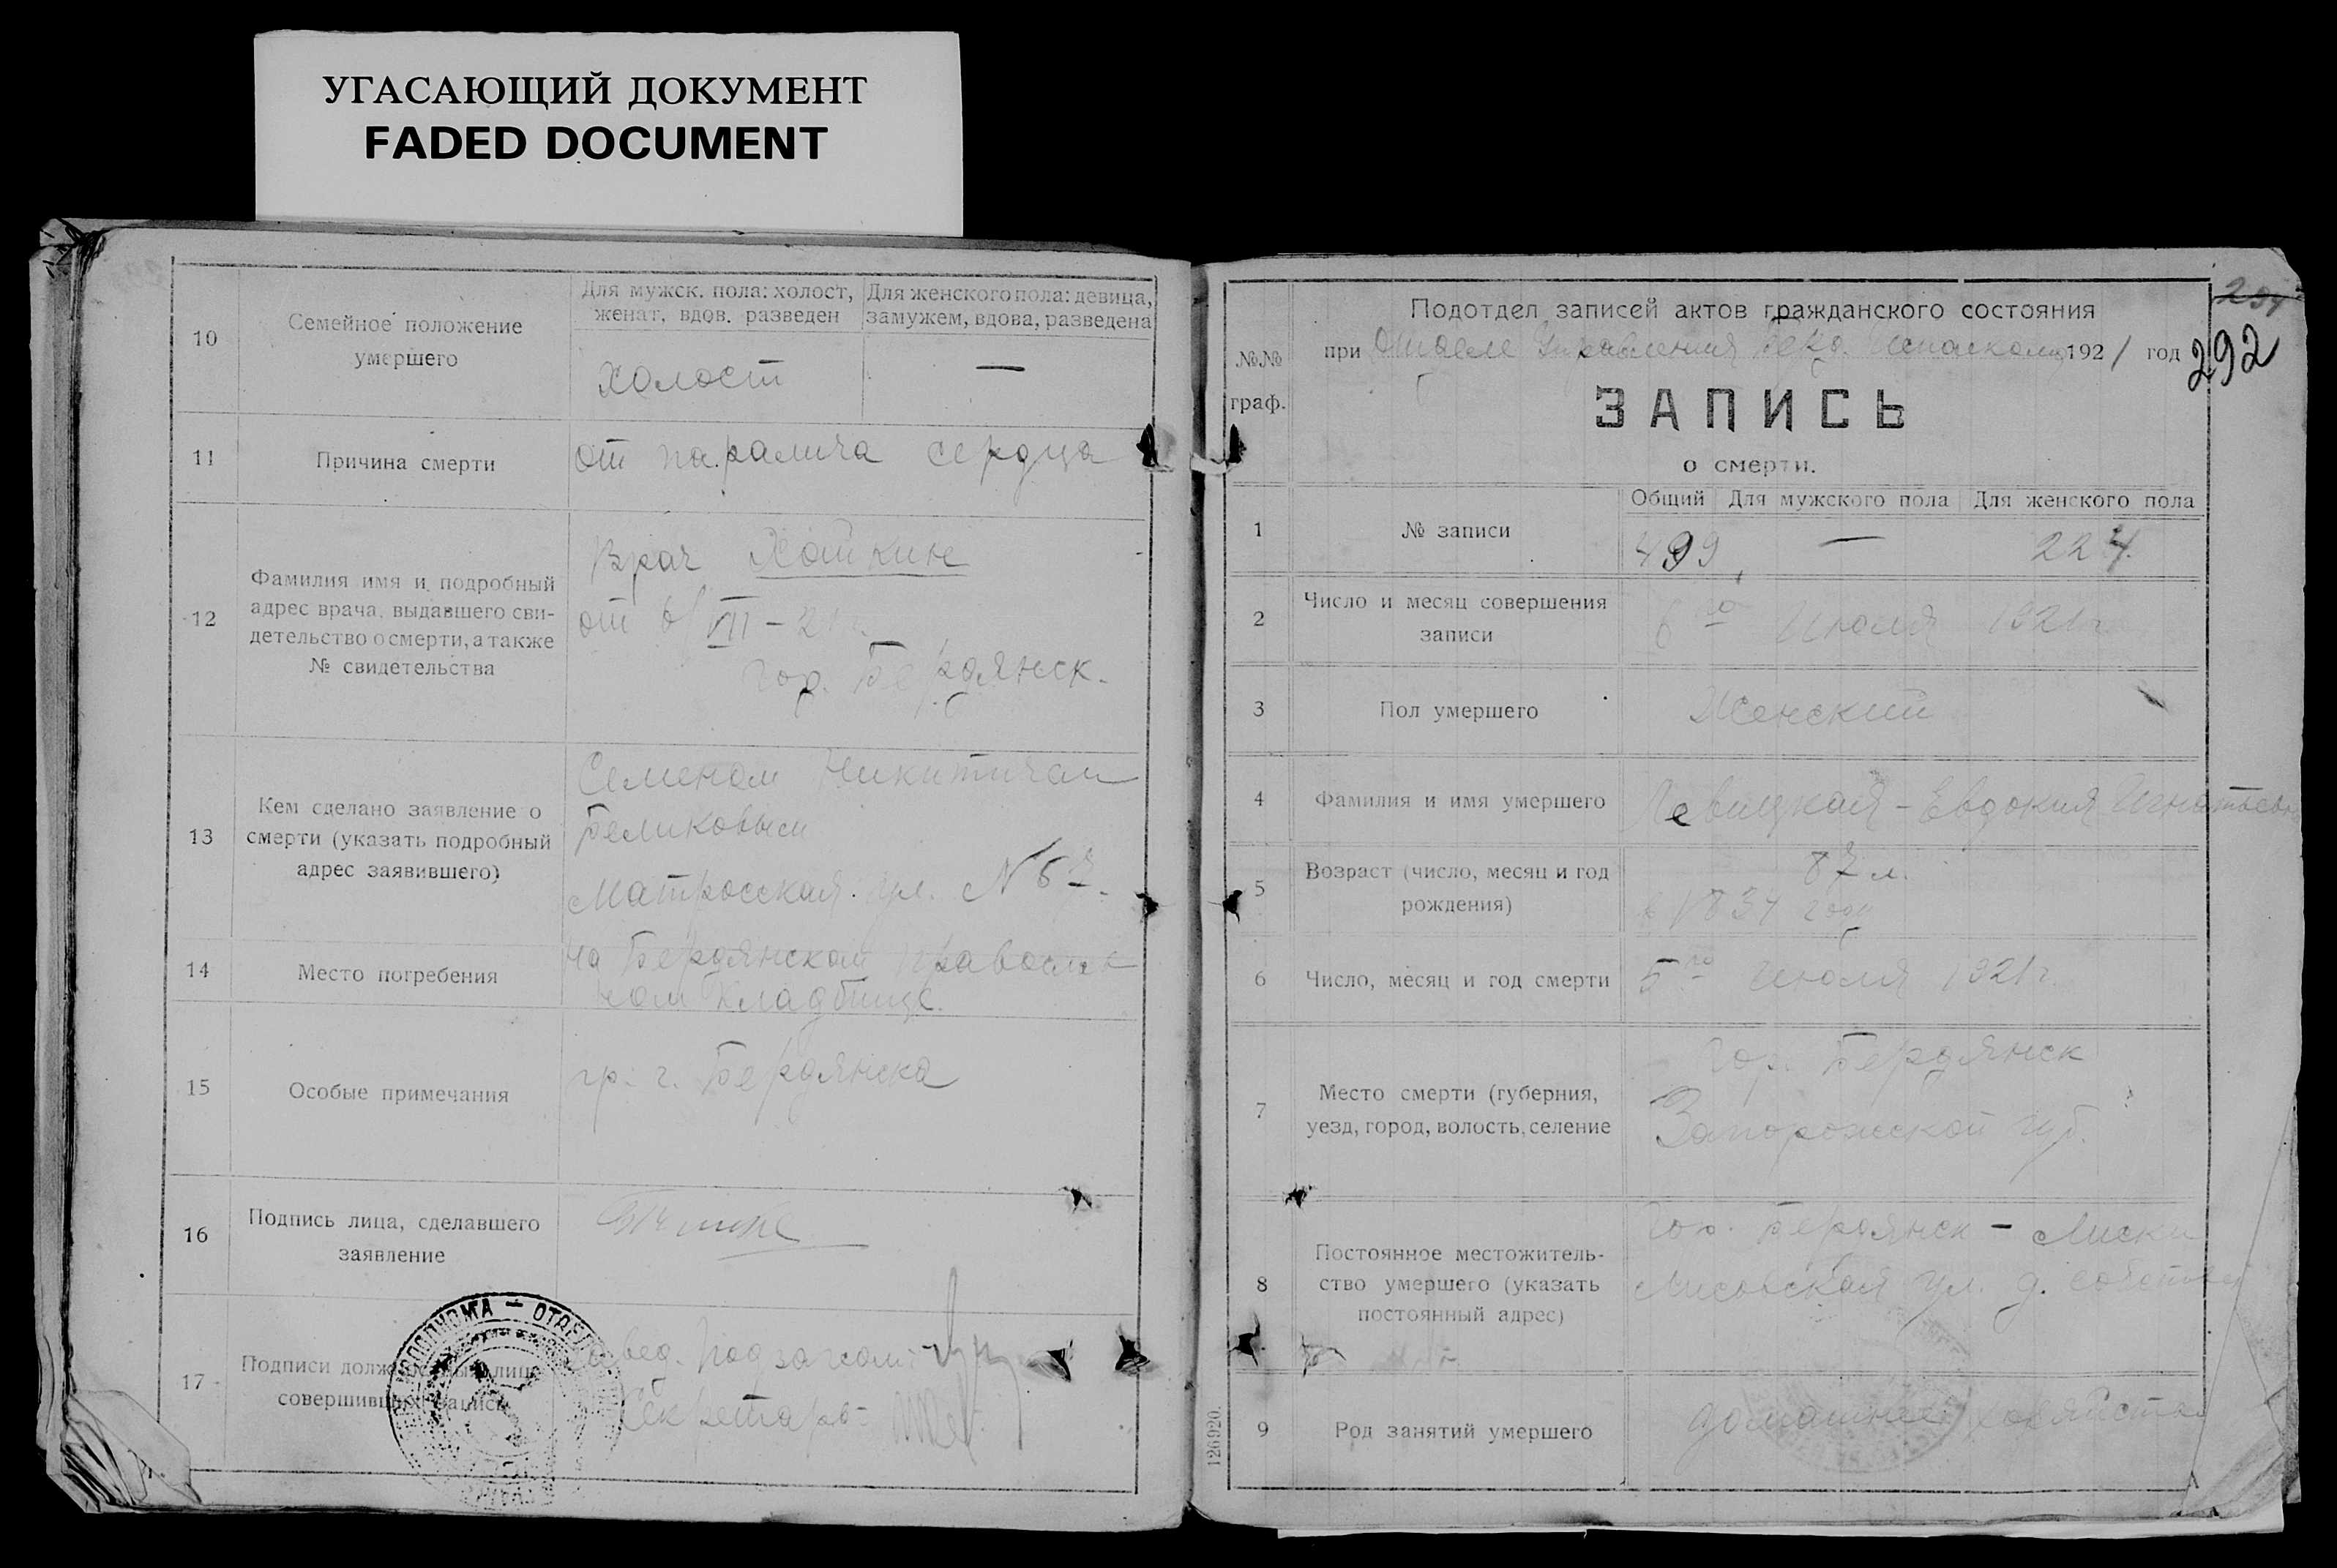 УГАСАЮЩИЙ ДОКУМЕНТ
FADED DOCUMENT
10
Семейное положение
умершего
Для мужск. пола: холост,
женат, вдов. разведен
Для женского пола: девица,
замужем, вдова, разведена
Холост
—
11
Причина смерти
от паралича сердца
12
Фамилия имя и подробный
адрес врача, выдавшего сви-
детельство о смерти, а также
№ свидетельства
Врач Хайкин
от 6/VII-21 г.
гор. Бердянск.
13
Кем сделано заявление о
смерти (указать подробный
адрес заявившего)
Семеном Никитичем
Беликовым
Матросская ул. № 57.
14
Место погребения
на Бердянском православ
ном кладбище.
15
Особые примечания
гр. г. Бердянска
16
Подпись лица, сделавшего
заявление
17
Подписи должностных лиц
совершивших запись
Завед. Подзагсом
Секретарь
№№
граф.
Подотдел записей актов гражданского состояния
при Отделе Управления Берд. 1921 год
294
292
ЗАПИСЬ
о смерти.
1
№ записи
Общий Для мужского пола Для женского пола
499, — 224.
2
Число и месяц совершения
записи
6го Июля 1921 г.
3
Пол умершего
Женский
4
Фамилия и имя умершего
Левицкая - Евдокия Игнатьевн
5
Возраст (число, месяц и год
рождения)
87 л.
в 1834 году
6
Число, месяц и год смерти
5го Июля 1921 г.
7
Место смерти (губерния,
уезд, город, волость, селение
Гор. Бердянск
Запорожской губ.
8
Постоянное местожитель-
ство умершего (указать
постоянный адрес)
Гор. Бердянск - Лиски
ул. д. собствен
9
Род занятий умершего
домашнее хозяйство
126920.